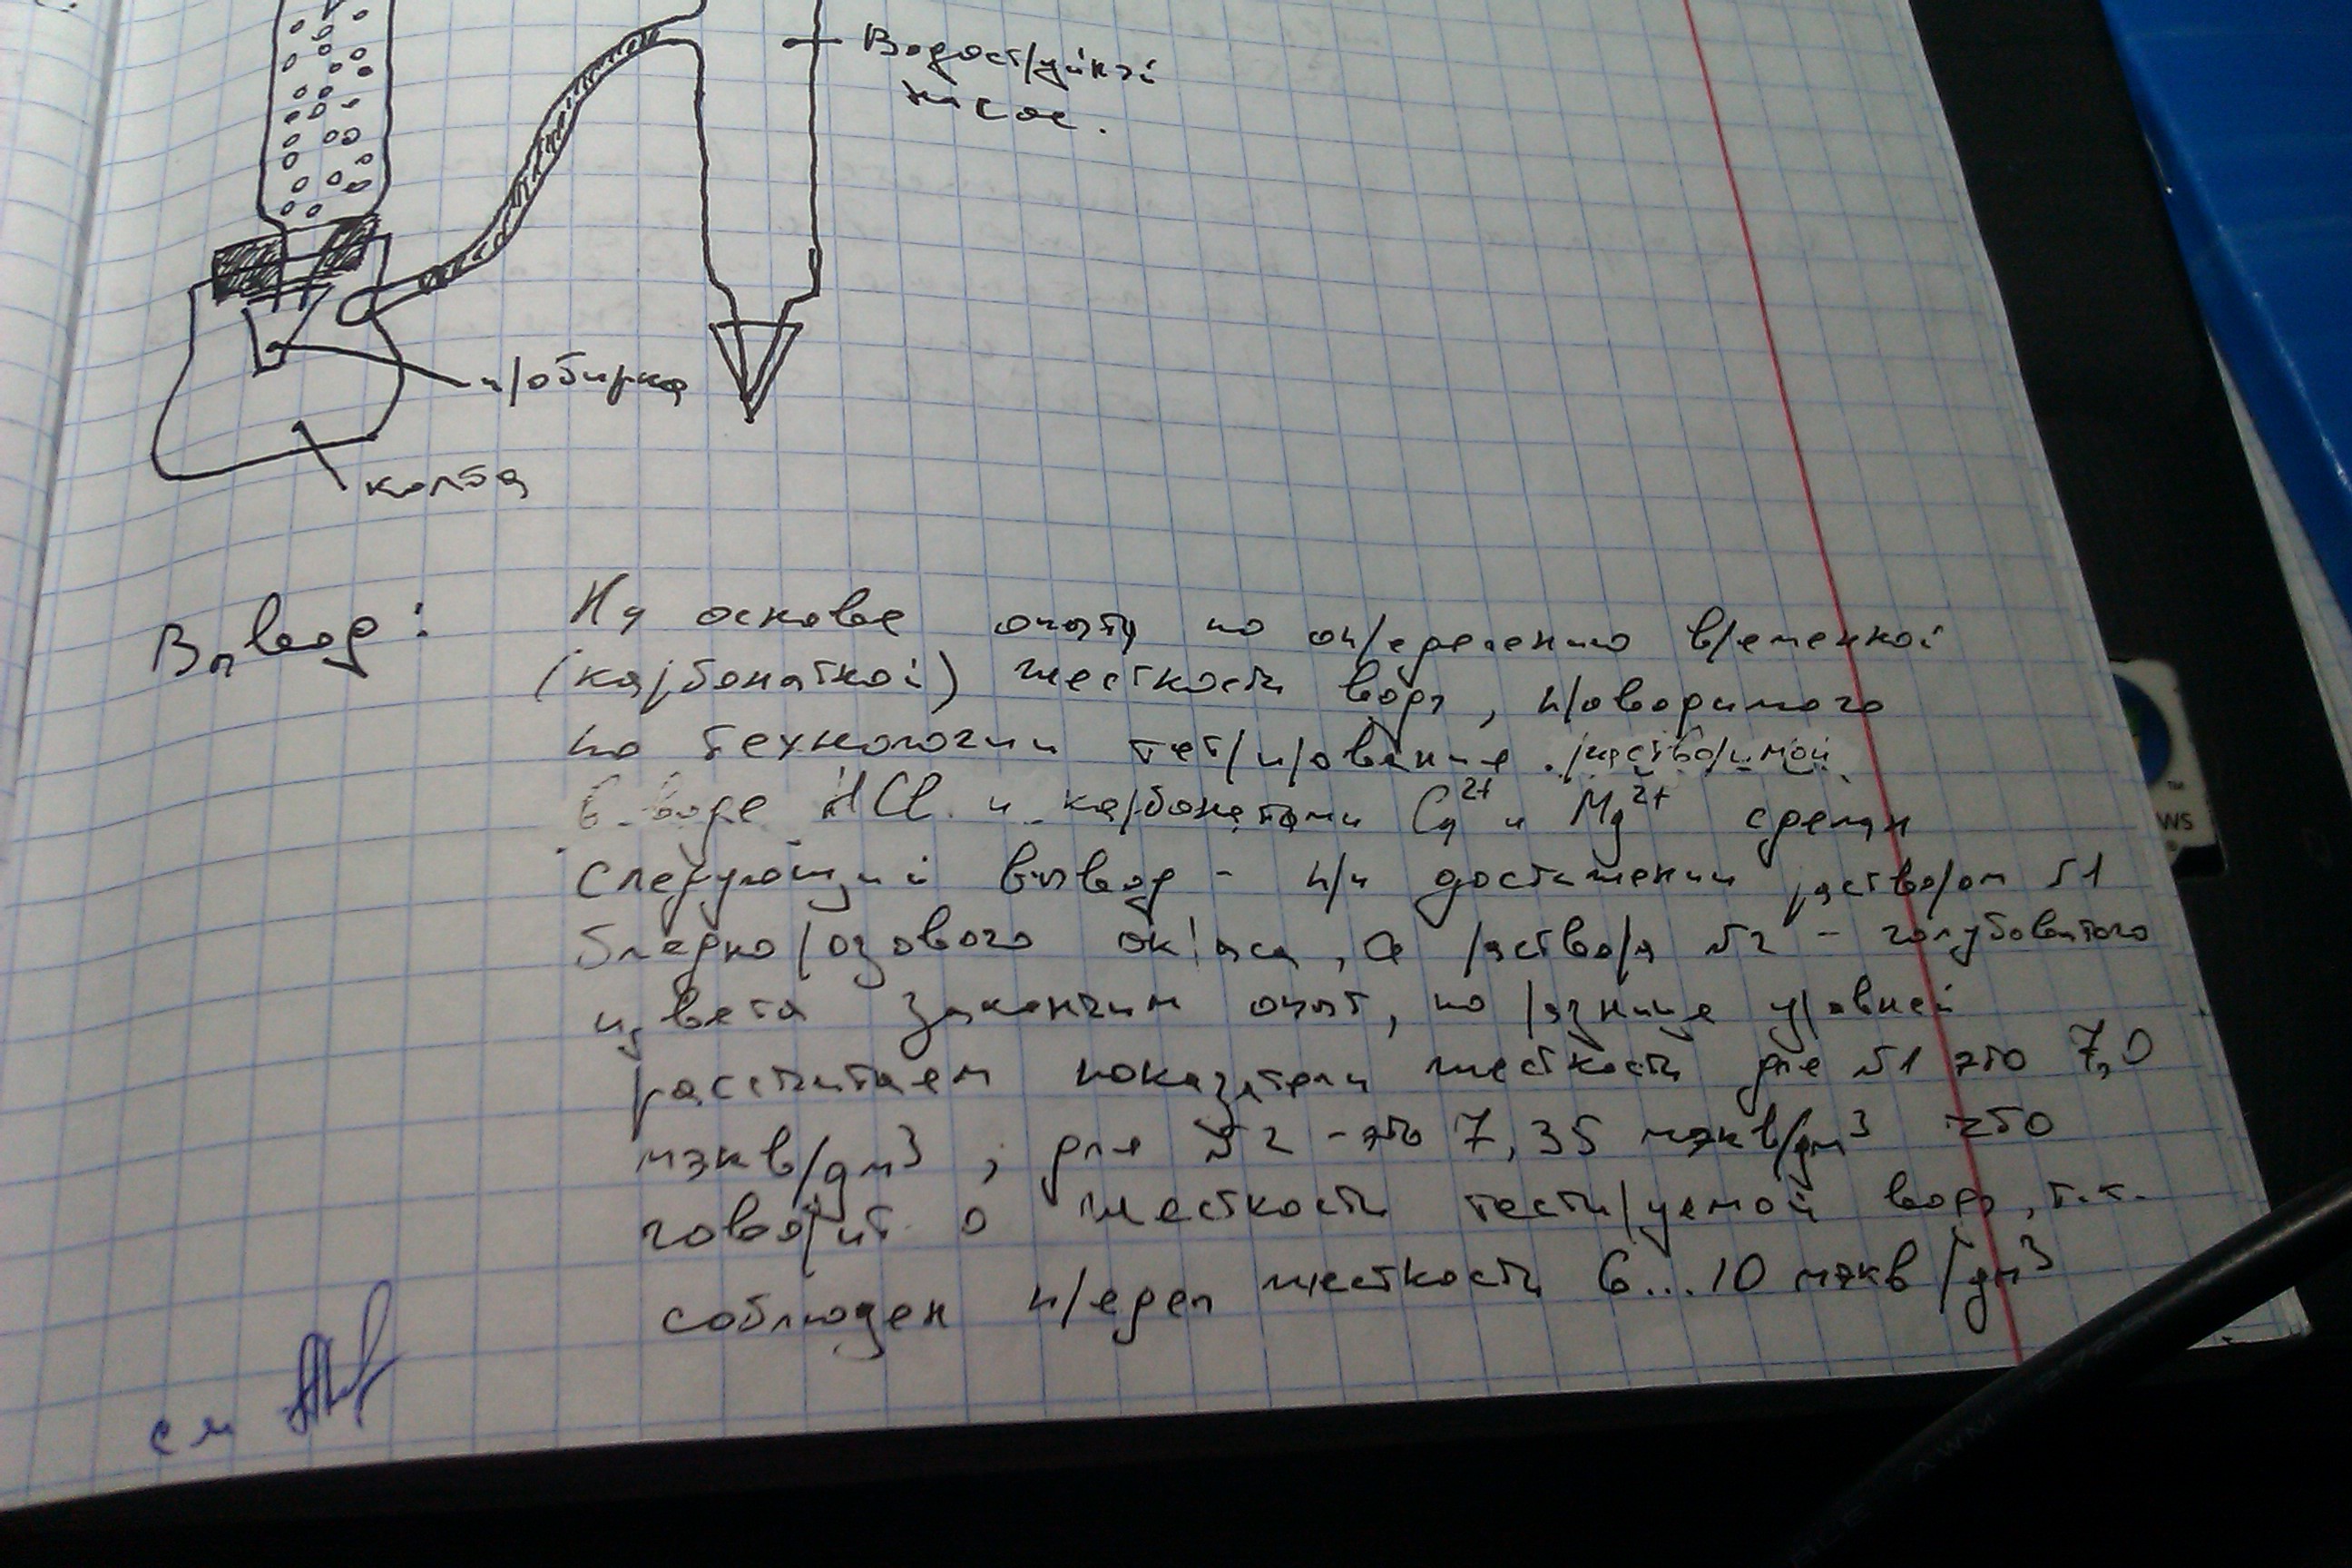 Водоструйный
насос.
пробирка
колба
Вывод:
На основе опыта по определению временной
(карбонатной) жесткости воды, проводимого
по технологии титрирование растворимой
в воде HCl и карбонатами Ca²⁺ и Mg²⁺ сделан
следующий вывод - при достижении раствором №1
бледно розового окраса, а раствора №2 - голубоватого
цвета закончим опыт, по разнице уровней
рассчитаем показатели жесткости для №1 это 7,0
мэкв/дм³, для №2 - это 7,35 мэкв/дм³ это
говорит о жесткости тестируемой воды, т.к.
соблюден предел жесткости 6...10 мэкв/дм³
см
WS